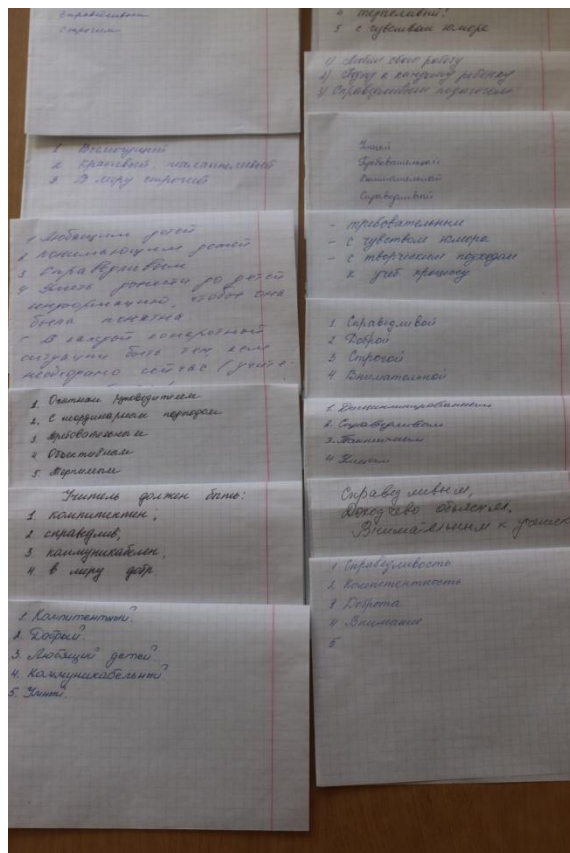 справедливым
строгим
1 Всемогущий
2 Красивый, талантливый
3 В меру строгий
1 Любящим детей
2 понимающим детей
3 Справедливым
4 Уметь донести до детей
информацию, чтобы она
была понятна
В каждой конкретной
ситуации быть тем кем
необходимо сейчас (учите-
1. Опытным руководителем
2. С неординарным подходом
3 Требовательным
4 Объективным
5 Терпимым
Учитель должен быть:
1 компитентен;
2 справедлив,
3 коммуникабелен,
4. в меру добр
1. Компитентный.
2. Добрый.
3. Любящий детей.
4. Коммуникабельный
5. Умный.
4 терпеливый!
5 с чувством юмора
1) Любить свою работу
2) Подход к каждому ребенку
3) Справедливым педагогом
Умной
Требовательной
Внимательной
Справедливой
- требовательным
- с чувством юмора
- с творческим подходом
к учеб процессу
1 Справедливой
2 Доброй
3 Строгой
4 Внимательной
1. Дисциплинированным
2. Справедливым
3. Тактичным
4 Умным
Справедливым,
Доходчево объяснял,
Внимательным к
1 Справедливость
2 Компитентность
3 Доброта
4 Внимание
5